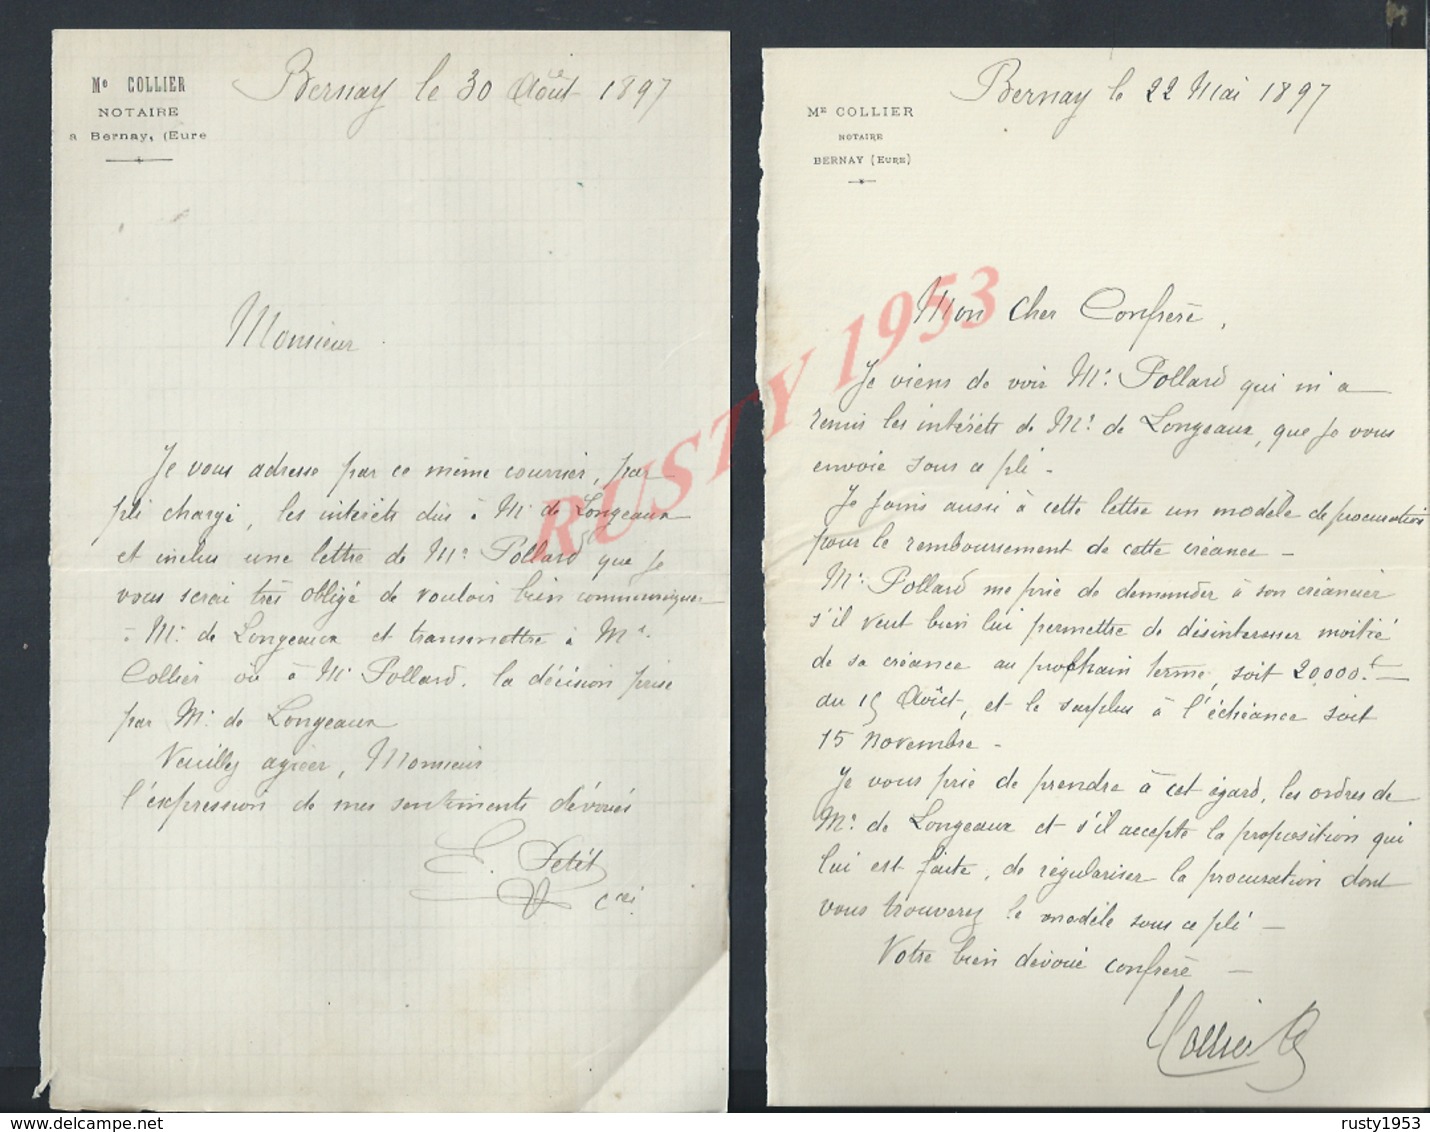 Me COLLIER
NOTAIRE
a Bernay, (Eure
Bernay le 30 Août 1897
Monsieur
Je vous adresse par ce même courrier, par
pli chargé, les intérêts dus à Mr de Longeaux
et inclus une lettre de Mr Pollard que je
vous serai très obligé de vouloir bien communiquer
à Mr de Longeaux et transmettre à Me
Collier ou à Mr Pollard, la décision prise
par Mr de Longeaux
Veuillez agréer, Monsieur
l'expression de mes sentiments dévoués
E. Petit
ME COLLIER
NOTAIRE
BERNAY (EURE)
Bernay le 22 Mai 1897
Mon Cher Confrère,
Je viens de voir Mr Pollard qui m'a
remis les intérêts de Mr de Longeaux, que je vous
envoie sous ce pli -
Je joins aussi à cette lettre un modèle de procuration
pour le remboursement de cette créance -
Mr Pollard me prie de demander à son créancier
s'il veut bien lui permettre de désintéresser moitié
de sa créance au prochain terme, soit 20.000f -
du 15 Août, et le surplus à l'échéance soit
15 novembre -
Je vous prie de prendre à cet égard, les ordres de
Mr de Longeaux et s'il accepte la proposition qui
lui est faite, de régulariser la procuration dont
vous trouverez le modèle sous ce pli -
Votre bien dévoué confrère -
Collier
RUSTY 1953
delcampe.net
rusty1953